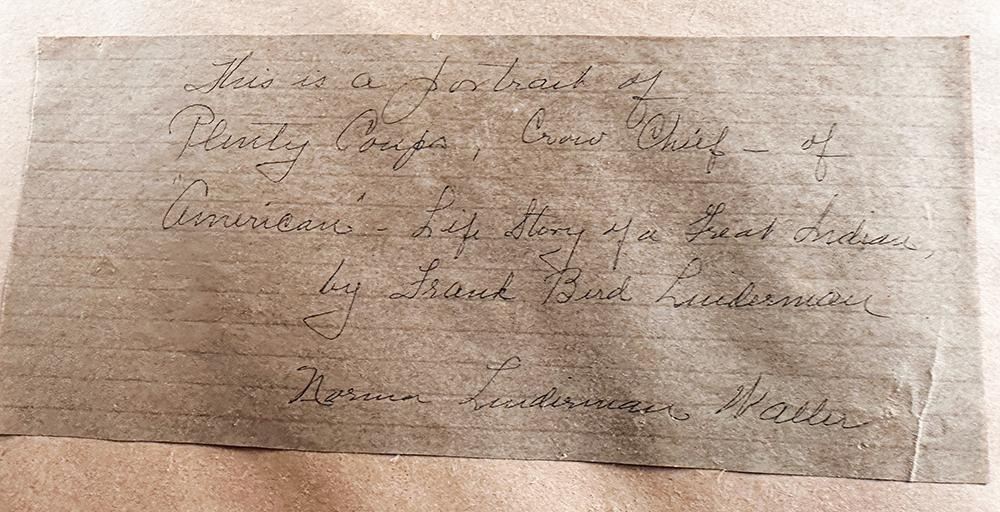 This is a portrait of
Plenty Coups, Crow Chief – of
"American" – Life Story of a Great Indian,
by Frank Bird Linderman
Norma Linderman Waller